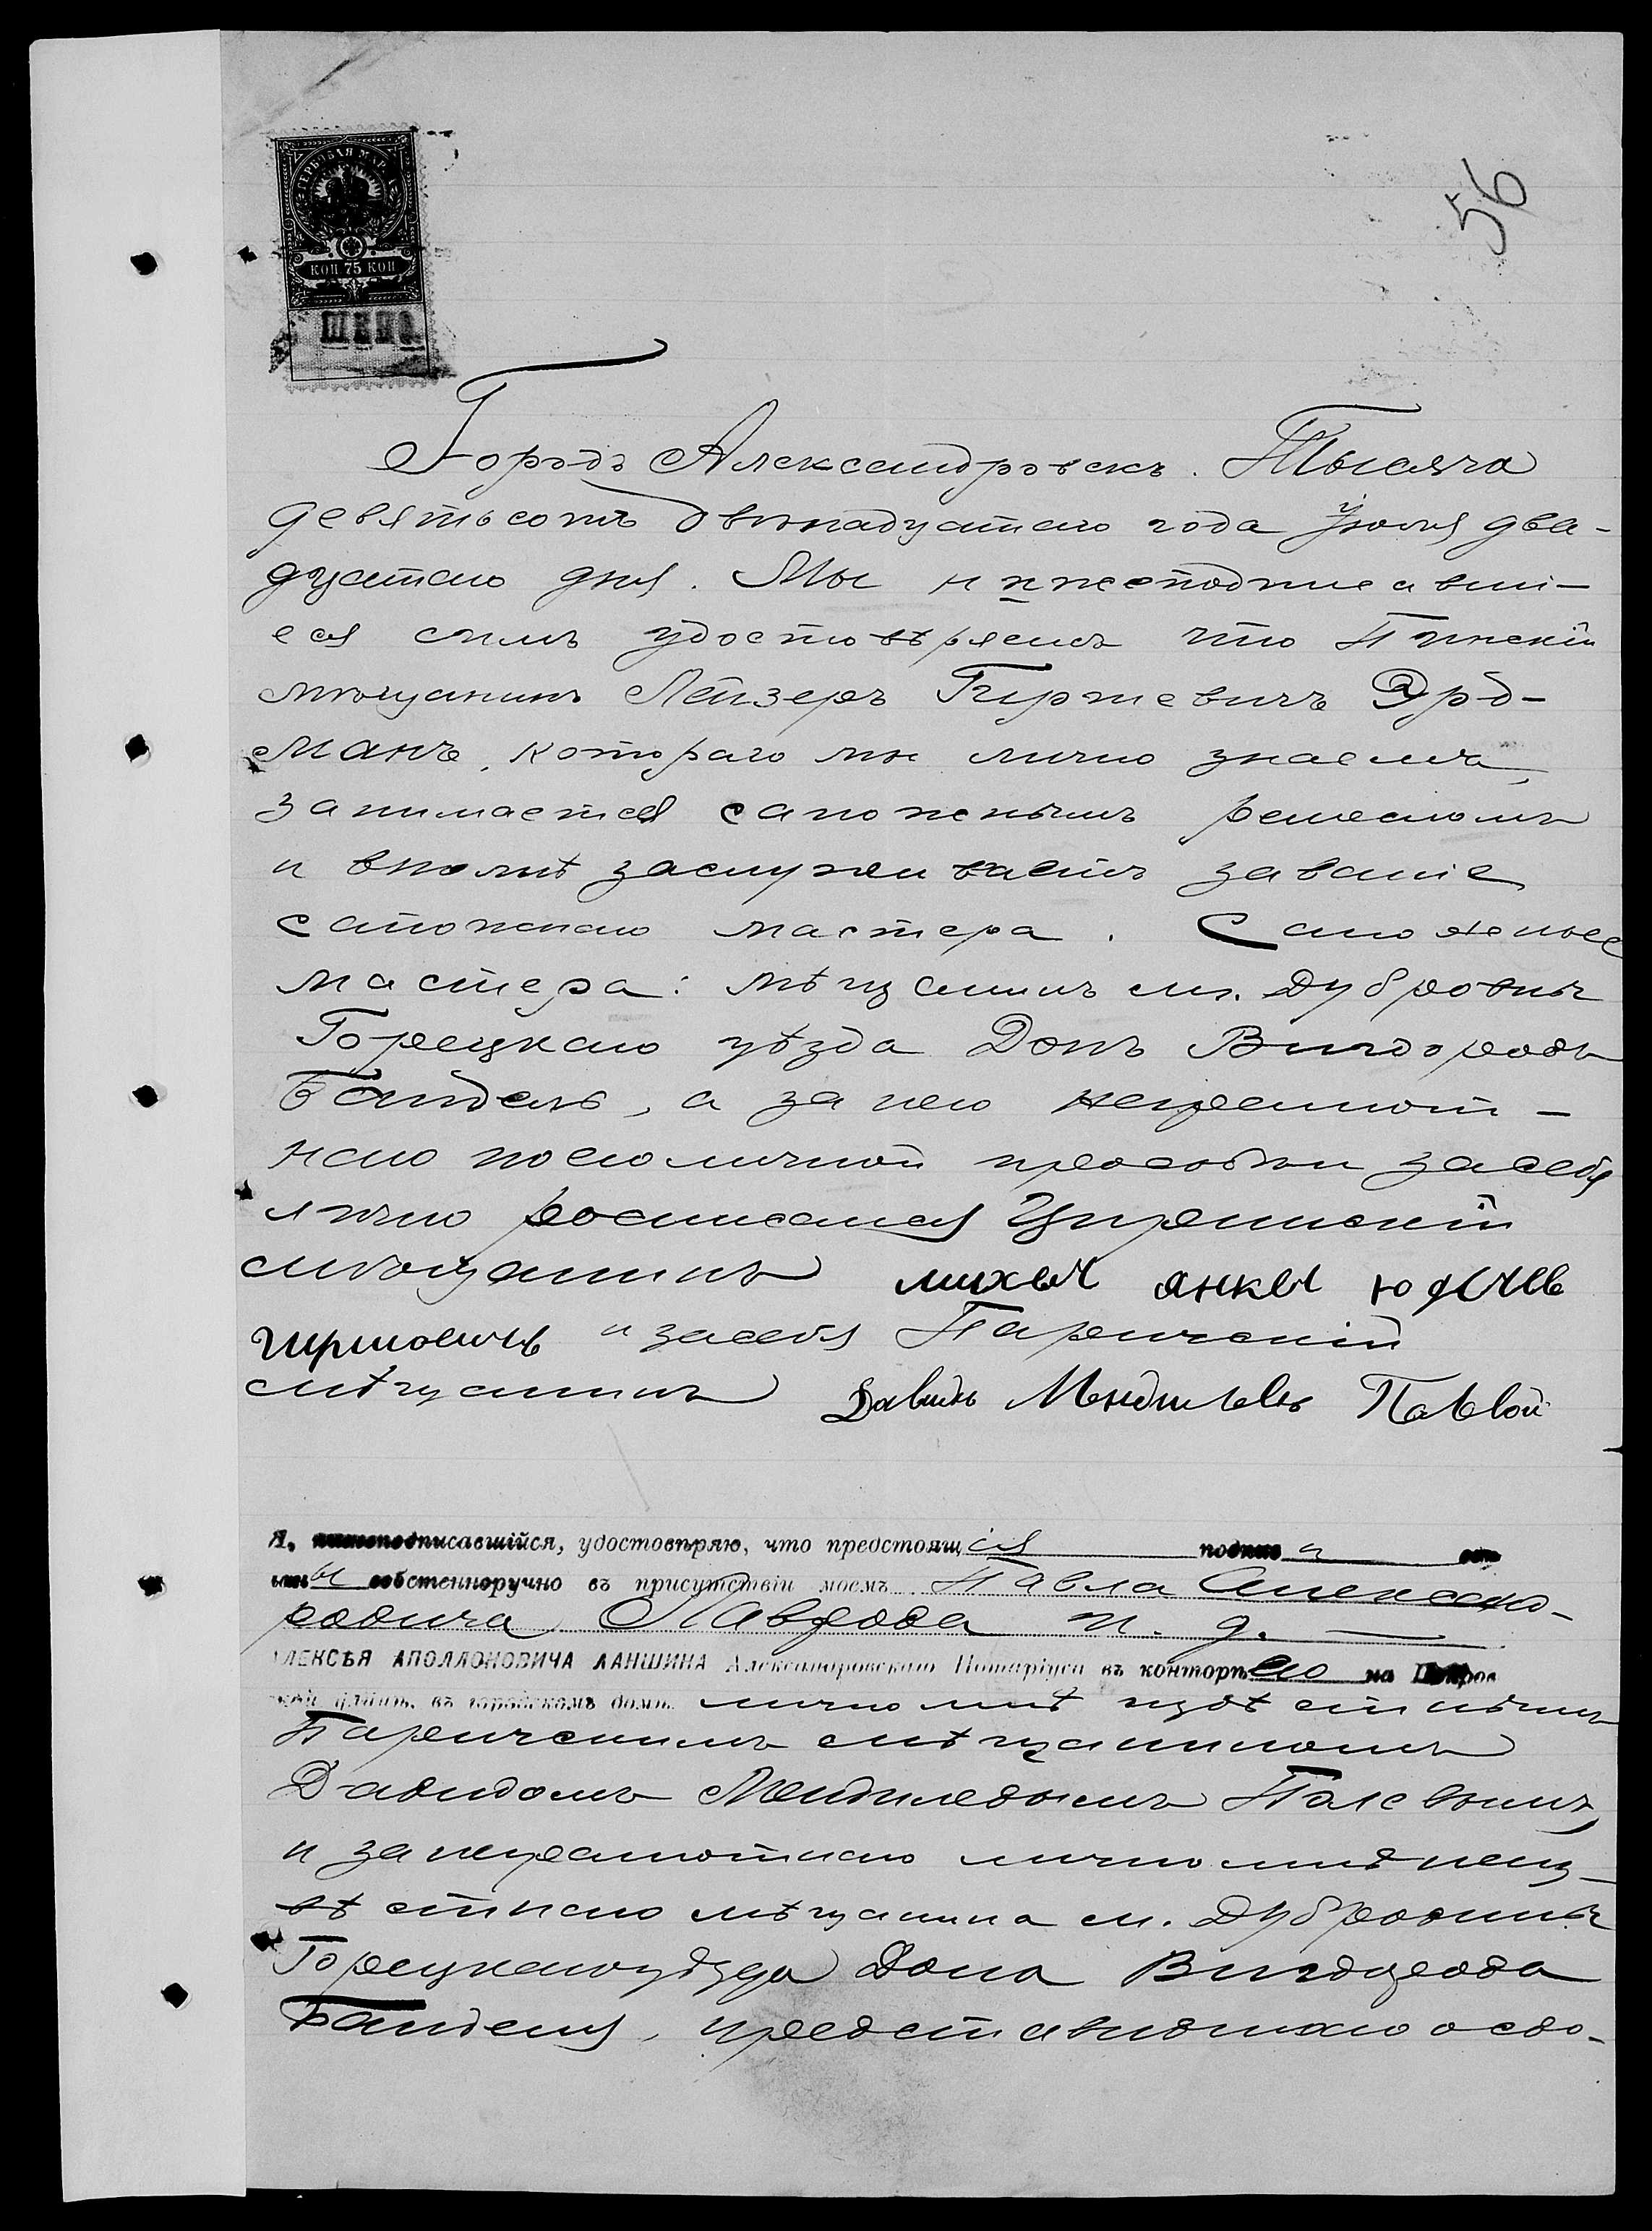 56
ГЕРБОВАЯ МАРКА
КОП 75 КОП
Городъ Александровскъ. Тысяча
девятьсотъ двѣнадцатаго года Іюля два-
дцатаго дня. Мы нижеподписавші-
еся симъ удостовѣряемъ что Пинскій
мѣщанинъ Лейзеръ Гиршевичъ Эрд-
манъ, котораго мы лично знаемъ,
занимается сапожнымъ ремесломъ
и вполнѣ заслуживаетъ званіе
сапожнаго мастера. Сапожные
мастера: мѣщанинъ м. Дубровны
Горецкаго уѣзда Донъ Вигдоровъ
Бандель, а за него неграмот-
наго по его личной просьбѣ и за себя
лично росписался Игуменскій
мѣщанинъ михел янкел юделев
гиршовичъ и за себя Паричскій
мѣщанинъ Давидъ Мендилевъ Палевой
Я, нижеподписавшійся, удостовѣряю, что предстоящія подписи
собственноручно въ присутствіи моемъ Павла Александ-
ровича Лаврова и. д.
АЛЕКСѢЯ АПОЛЛОНОВИЧА ЛАНШИНА Александровскаго Нотаріуса въ конторѣ его на
улицѣ, въ городскомъ домѣ лично мнѣ извѣстнымъ
Паричскимъ мѣщаниномъ
Давидомъ Мендилевымъ Палевымъ,
и за неграмотнаго лично мнѣ неиз-
вѣстнаго мѣщанина м. Дубровны
Горецкаго уѣзда Дона Вигдорова
Банделя, представившаго о сво-